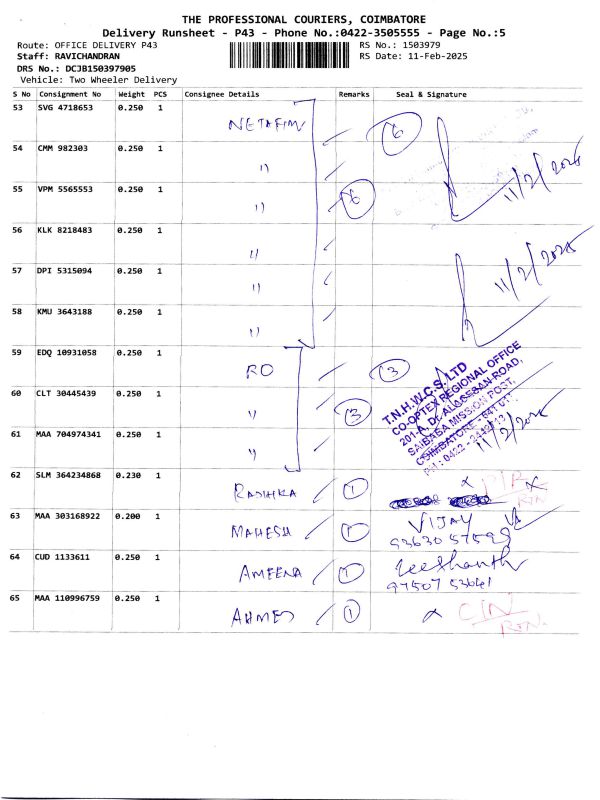 THE PROFESSIONAL COURIERS, COIMBATORE
Delivery Runsheet - P43 - Phone No.:0422-3505555 - Page No.:5
Route: OFFICE DELIVERY P43
RS No.: 1503979
Staff: RAVICHANDRAN
RS Date: 11-Feb-2025
DRS No.: DCJB150397905
Vehicle: Two Wheeler Delivery
S No Consignment No Weight PCS Consignee Details Remarks Seal & Signature
53 SVG 4718653 0.250 1 NETAFIM 6
54 CMM 982303 0.250 1 " 11/2/2025
55 VPM 5565553 0.250 1 " 6
56 KLK 8218483 0.250 1 "
57 DPI 5315094 0.250 1 " 11/2/2025
58 KMU 3643188 0.250 1 "
59 EDQ 10931058 0.250 1 RO 3
T.N.H.W.C.S. LTD
CO-OPTEX REGIONAL OFFICE
201-A, Dr. ALAGESAN ROAD,
SAIBABA MISSION POST,
COIMBATORE - 641 011
PH : 0422 -
60 CLT 30445439 0.250 1 " 3
61 MAA 704974341 0.250 1 " 11/2/2025
62 SLM 364234868 0.230 1 RADHIKA 1 x x
RTN
63 MAA 303168922 0.200 1 MAHESH 1 VIJAY
93630 57598
64 CUD 1133611 0.250 1 AMEENA 1
97507 53641
65 MAA 110996759 0.250 1 AHMED 1 x
RTN